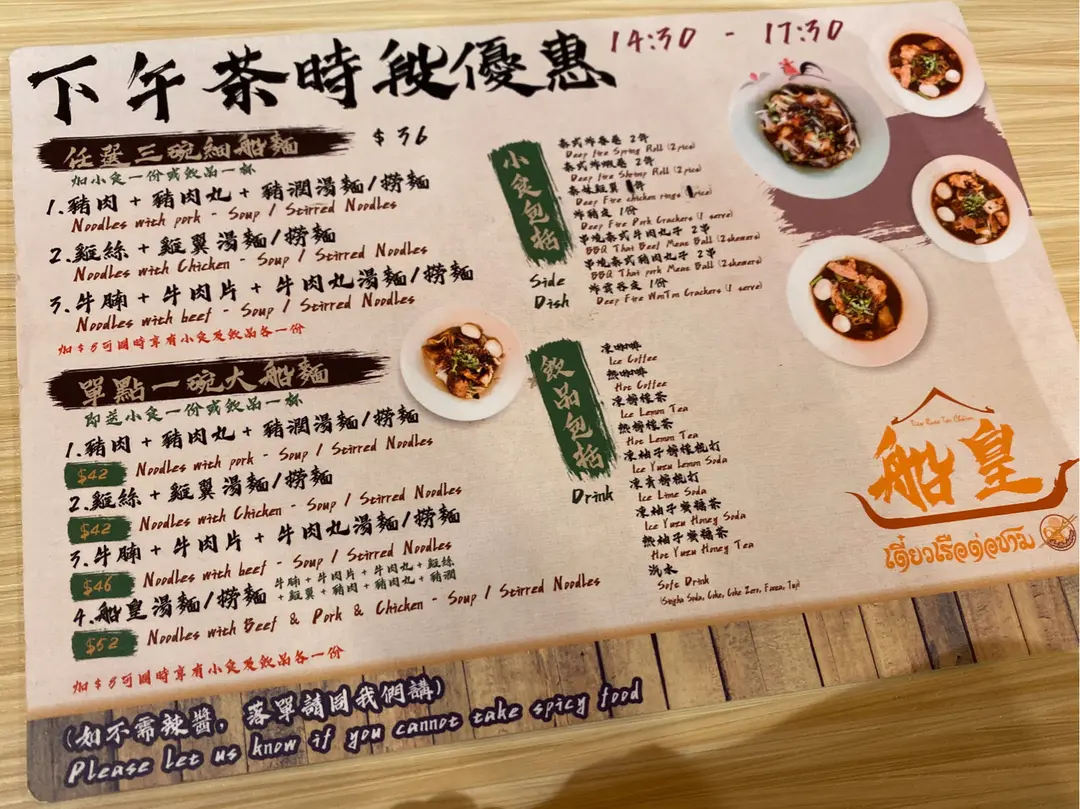 下午茶時段優惠 14:30 - 17:30
任選三碗細船麵 $36
加小食一份或飲品一杯
1.豬肉 + 豬肉丸 + 豬潤湯麵/撈麵
Noodles with pork - Soup / Stirred Noodles
2.雞絲 + 雞翼湯麵/撈麵
Noodles with Chicken - Soup / Stirred Noodles
3.牛腩 + 牛肉片 + 牛肉丸湯麵/撈麵
Noodles with beef - Soup / Stirred Noodles
加$8可同時享有小食及飲品各一份
單點一碗大船麵
即送小食一份或飲品一杯
1.豬肉 + 豬肉丸 + 豬潤湯麵/撈麵
$42 Noodles with pork - Soup / Stirred Noodles
2.雞絲 + 雞翼湯麵/撈麵
$42 Noodles with Chicken - Soup / Stirred Noodles
3.牛腩 + 牛肉片 + 牛肉丸湯麵/撈麵
$46 Noodles with beef - Soup / Stirred Noodles
4.船皇湯麵/撈麵 牛腩 + 牛肉片 + 牛肉丸 + 雞絲
+ 雞翼 + 豬肉 + 豬肉丸 + 豬潤
$52 Noodles with Beef & Pork & Chicken - Soup / Stirred Noodles
加$8可同時享有小食及飲品各一份
(如不需辣醬，落單請同我們講)
Please let us know if you cannot take spicy food
小食包括
Side
Dish
泰式炸春卷 2件
Deep Fire Spring Roll (2pice)
泰式炸蝦卷 2件
Deep fire Shrimp Roll (2pice)
泰妹雞翼 件
Deep Fire chicken rings
炸豬皮 1份
Deep Fire Pork Crackers (1 serve)
串燒泰式牛肉丸子 2串
BBQ Thai Beef Meas Ball (2skewers)
串燒泰式豬肉丸子 2串
BBQ Thai pork Meas Ball (2skewers)
炸雲吞皮 1份
Deep Fire WonTon Crackers (1 serve)
飲品包括
Drink
凍咖啡
Ice Coffee
熱咖啡
Hot Coffee
凍檸檬茶
Ice Lemon Tea
熱檸檬茶
Hot Lemon Tea
凍柚子檸檬梳打
Ice Yuzu Lemon Soda
凍青檸梳打
Ice Lime Soda
凍柚子蜜糖茶
Ice Yuzu Honey Soda
熱柚子蜜糖茶
Hot Yuzu Honey Tea
汽水
Soft Drink
(Singha Soda, Coke, Coke Zero, Fanta, 7up)
船皇
เตี๋ยวเรือต่อชาม